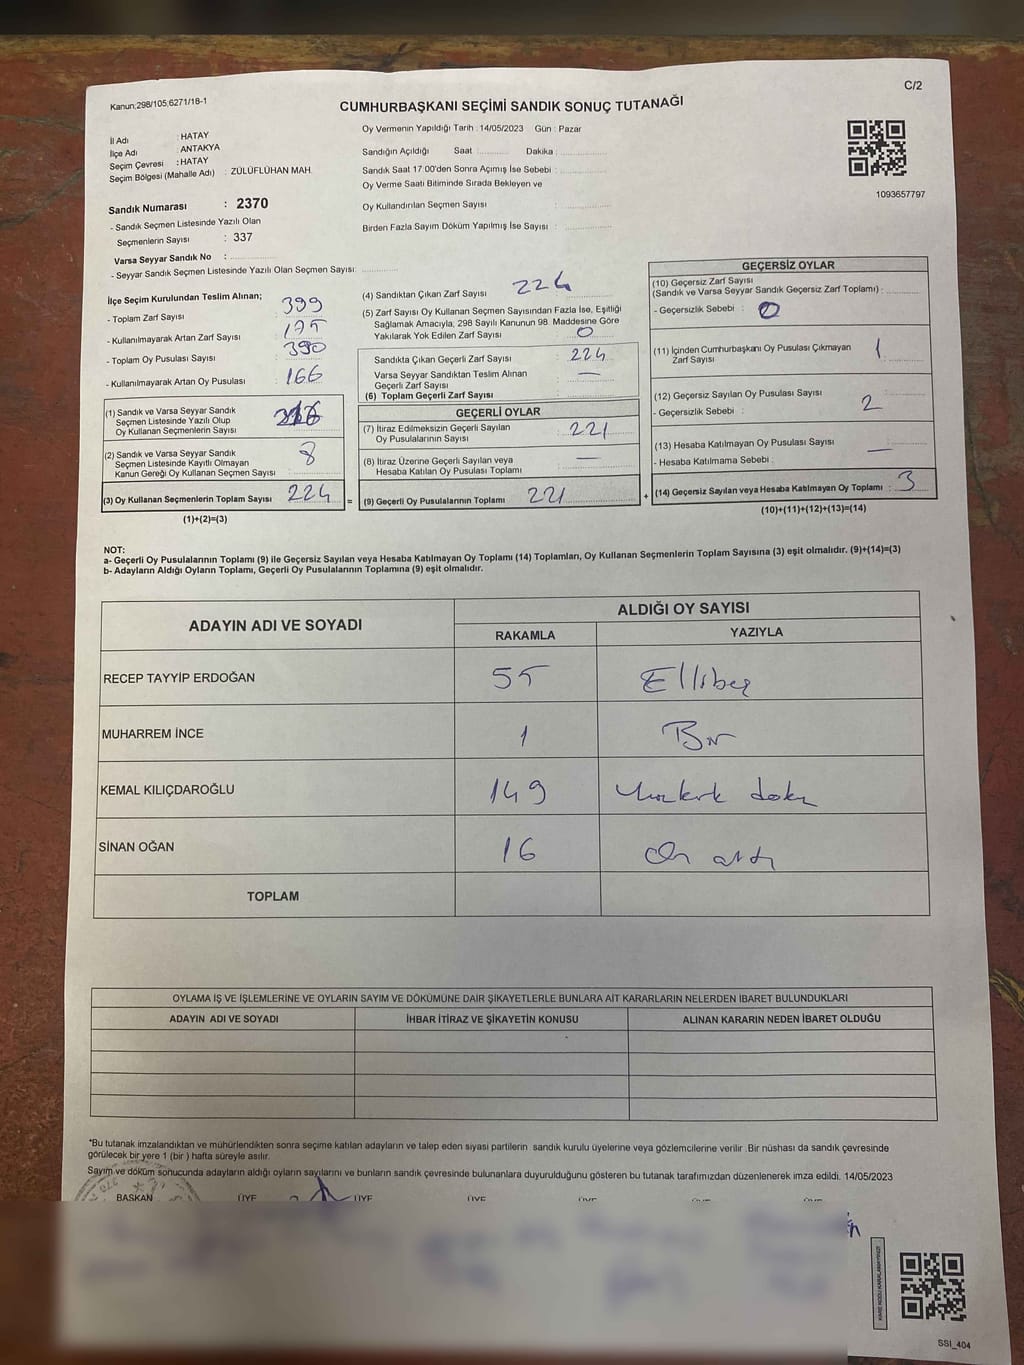 Kanun;298/105;6271/18-1
C/2
CUMHURBAŞKANI SEÇİMİ SANDIK SONUÇ TUTANAĞI
İl Adı : HATAY
İlçe Adı : ANTAKYA
Seçim Çevresi : HATAY
Seçim Bölgesi (Mahalle Adı) : ZÜLÜFLÜHAN MAH.
Sandık Numarası : 2370
- Sandık Seçmen Listesinde Yazılı Olan
Seçmenlerin Sayısı : 337
Varsa Seyyar Sandık No :
- Seyyar Sandık Seçmen Listesinde Yazılı Olan Seçmen Sayısı:
Oy Vermenin Yapıldığı Tarih : 14/05/2023 Gün : Pazar
Sandığın Açıldığı Saat : Dakika :
Sandık Saat 17:00'den Sonra Açımış İse Sebebi :
Oy Verme Saati Bitiminde Sırada Bekleyen ve
Oy Kullandırılan Seçmen Sayısı :
Birden Fazla Sayım Döküm Yapılmış İse Sayısı :
1093657797
İlçe Seçim Kurulundan Teslim Alınan;
- Toplam Zarf Sayısı : 399
- Kullanılmayarak Artan Zarf Sayısı : 175
- Toplam Oy Pusulası Sayısı : 390
- Kullanılmayarak Artan Oy Pusulası : 166
(1) Sandık ve Varsa Seyyar Sandık
Seçmen Listesinde Yazılı Olup
Oy Kullanan Seçmenlerin Sayısı
(2) Sandık ve Varsa Seyyar Sandık
Seçmen Listesinde Kayıtlı Olmayan
Kanun Gereği Oy Kullanan Seçmen Sayısı : 8
(3) Oy Kullanan Seçmenlerin Toplam Sayısı : 224 =
(1)+(2)=(3)
(4) Sandıktan Çıkan Zarf Sayısı : 224
(5) Zarf Sayısı Oy Kullanan Seçmen Sayısından Fazla İse, Eşitliği
Sağlamak Amacıyla, 298 Sayılı Kanunun 98. Maddesine Göre
Yakılarak Yok Edilen Zarf Sayısı : 0
Sandıkta Çıkan Geçerli Zarf Sayısı : 224
Varsa Seyyar Sandıktan Teslim Alınan
Geçerli Zarf Sayısı : —
(6) Toplam Geçerli Zarf Sayısı :
GEÇERLİ OYLAR
(7) İtiraz Edilmeksizin Geçerli Sayılan
Oy Pusulalarının Sayısı : 221
(8) İtiraz Üzerine Geçerli Sayılan veya
Hesaba Katılan Oy Pusulası Toplamı : —
(9) Geçerli Oy Pusulalarının Toplamı : 221 +
GEÇERSİZ OYLAR
(10) Geçersiz Zarf Sayısı
(Sandık ve Varsa Seyyar Sandık Geçersiz Zarf Toplamı) :
- Geçersizlik Sebebi : 0
(11) İçinden Cumhurbaşkanı Oy Pusulası Çıkmayan
Zarf Sayısı : 1
(12) Geçersiz Sayılan Oy Pusulası Sayısı : 2
- Geçersizlik Sebebi :
(13) Hesaba Katılmayan Oy Pusulası Sayısı : —
- Hesaba Katılmama Sebebi :
(14) Geçersiz Sayılan veya Hesaba Katılmayan Oy Toplamı : 3
(10)+(11)+(12)+(13)=(14)
NOT:
a- Geçerli Oy Pusulalarının Toplamı (9) ile Geçersiz Sayılan veya Hesaba Katılmayan Oy Toplamı (14) Toplamları, Oy Kullanan Seçmenlerin Toplam Sayısına (3) eşit olmalıdır. (9)+(14)=(3)
b- Adayların Aldığı Oyların Toplamı, Geçerli Oy Pusulalarının Toplamına (9) eşit olmalıdır.
ADAYIN ADI VE SOYADI
ALDIĞI OY SAYISI
RAKAMLA YAZIYLA
RECEP TAYYİP ERDOĞAN 55 Ellibeş
MUHARREM İNCE 1 Bir
KEMAL KILIÇDAROĞLU 149 Yüzkırk dokuz
SİNAN OĞAN 16 On altı
TOPLAM
OYLAMA İŞ VE İŞLEMLERİNE VE OYLARIN SAYIM VE DÖKÜMÜNE DAİR ŞİKAYETLERLE BUNLARA AİT KARARLARIN NELERDEN İBARET BULUNDUKLARI
ADAYIN ADI VE SOYADI İHBAR İTİRAZ VE ŞİKAYETİN KONUSU ALINAN KARARIN NEDEN İBARET OLDUĞU
*Bu tutanak imzalandıktan ve mühürlendikten sonra seçime katılan adayların ve talep eden siyasi partilerin sandık kurulu üyelerine veya gözlemcilerine verilir. Bir nüshası da sandık çevresinde
görülecek bir yere 1 (bir) hafta süreyle asılır.
Sayım ve döküm sonucunda adayların aldığı oyların sayılarını ve bunların sandık çevresinde bulunanlara duyurulduğunu gösteren bu tutanak tarafımızdan düzenlenerek imza edildi. 14/05/2023
BAŞKAN ÜYE ÜYE ÜYE
KARE KODU KARALAMAYINIZ!
SSİ_404